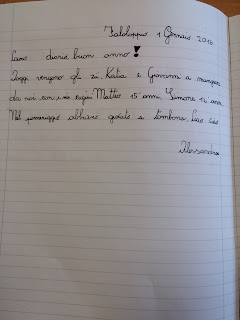 Faloppio 1 Gennaio 2016
Caro diario buon anno!
Oggi vengono gli zii Katia e Giovanni a mangiare
da noi con i miei cugini Matteo 15 anni, Simone 12 anni.
Nel pomeriggio abbiamo giocato a tombola. Ciao ciao
Alessandro